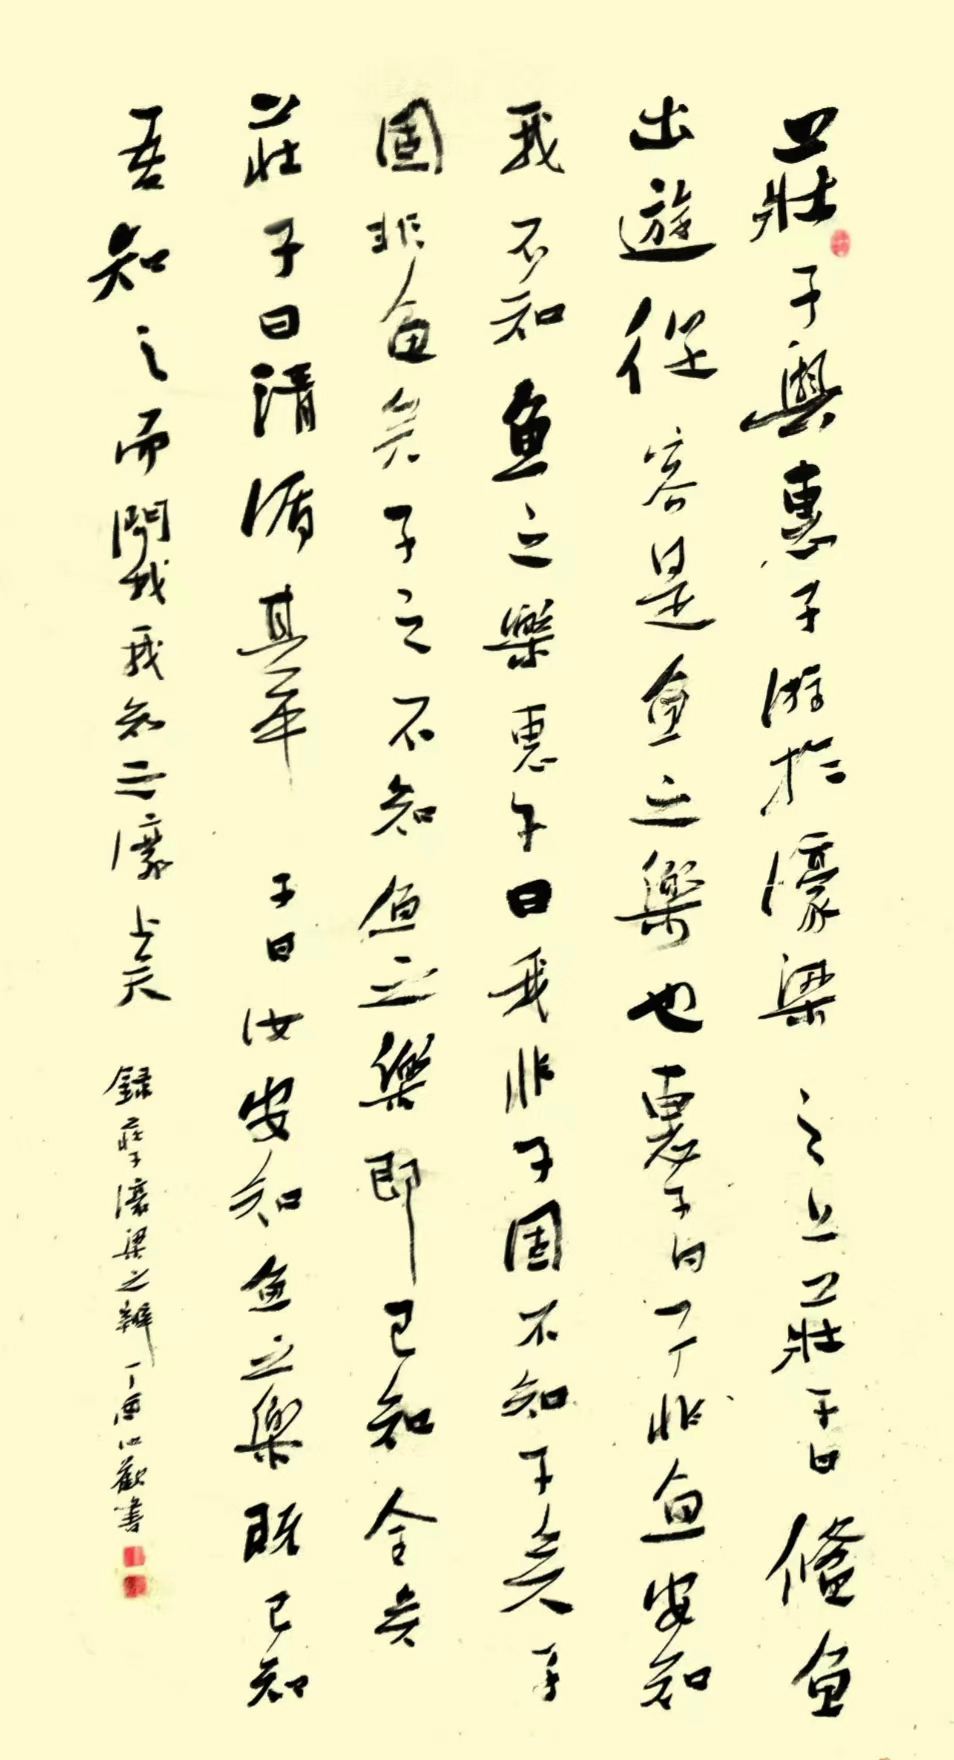 莊子與惠子游於濠梁之上莊子曰鯈魚
出遊從容是魚之樂也惠子曰子非魚安知
我不知魚之樂惠子曰我非子固不知子矣子
固非魚矣子之不知魚之樂即已知全矣
莊子曰請循其本子曰汝安知魚之樂既已知
吾知之而問我我知之濠上矣
錄莊子濠梁之辯丁酉心歡書